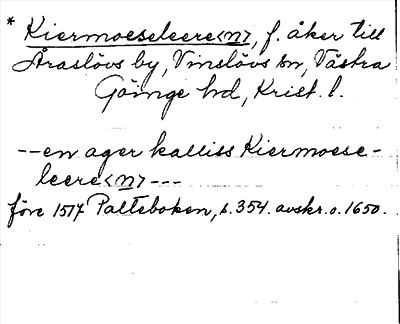 * Kiermoeseleere<n>, f. åker till
Araslövs by, Vinslövs sn, Västra
Göinge hd, Krist. l.
--en ager kalliss Kiermoese-
leere<n>---
före 1517 Palteboken, s. 354. avskr. o. 1650.